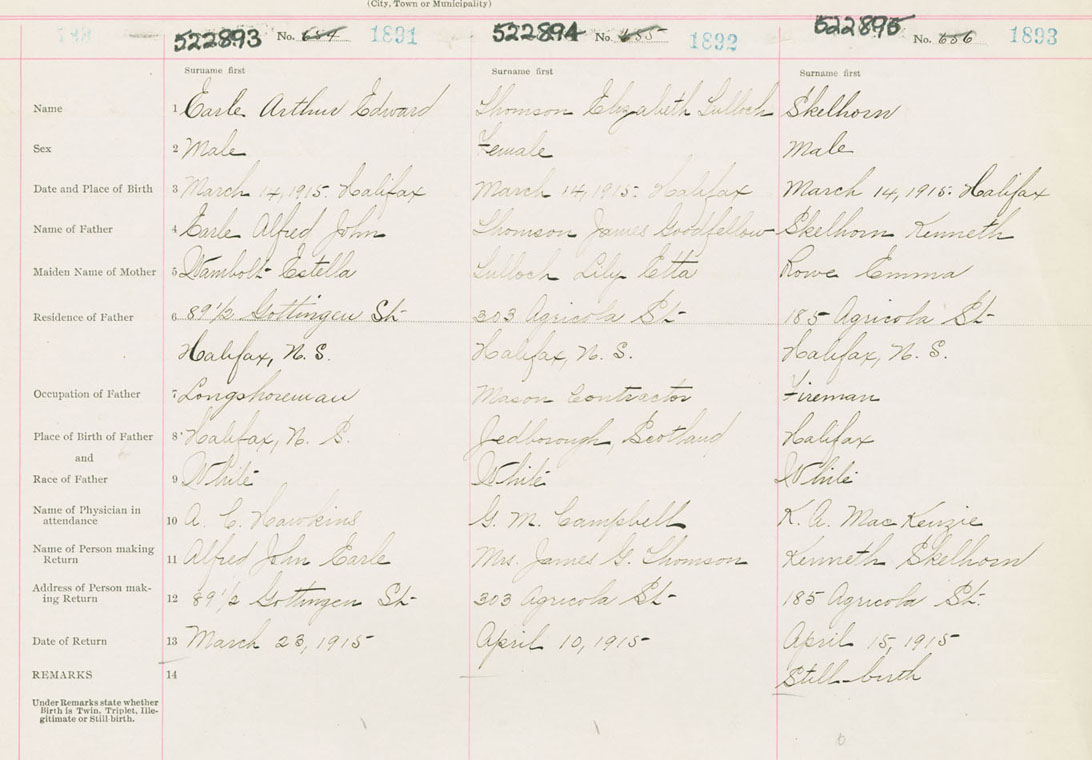 (City, Town or Municipality)
522893 No. 654 1891 522894 No. 655 1892 522895 No. 656 1893
Surname first Surname first Surname first
Name 1 Earle Arthur Edward Thomson Elizabeth Tulloch Skelhorn
Sex 2 Male Female Male
Date and Place of Birth 3 March 14, 1915. Halifax March 14, 1915. Halifax March 14, 1915. Halifax
Name of Father 4 Earle Alfred John Thomson James Goodfellow Skelhorn Kenneth
Maiden Name of Mother 5 Wambolt Estella Tulloch Lily Etta Rowe Emma
Residence of Father 6 89 1/2 Gottingen St 303 Agricola St 185 Agricola St
Halifax, N. S. Halifax, N. S. Halifax, N. S.
Occupation of Father 7 Longshoreman Mason Contractor Fireman
Place of Birth of Father 8 Halifax, N. S. Jedborough, Scotland Halifax
and
Race of Father 9 White White White
Name of Physician in
attendance 10 A. C. Hawkins G. M. Campbell K. A. MacKenzie
Name of Person making
Return 11 Alfred John Earle Mrs. James G. Thomson Kenneth Skelhorn
Address of Person mak-
ing Return 12 89 1/2 Gottingen St 303 Agricola St 185 Agricola St.
Date of Return 13 March 23, 1915 April 10, 1915 April 15, 1915
REMARKS 14 Still-birth
Under Remarks state whether
Birth is Twin, Triplet, Ille-
gitimate or Still birth.